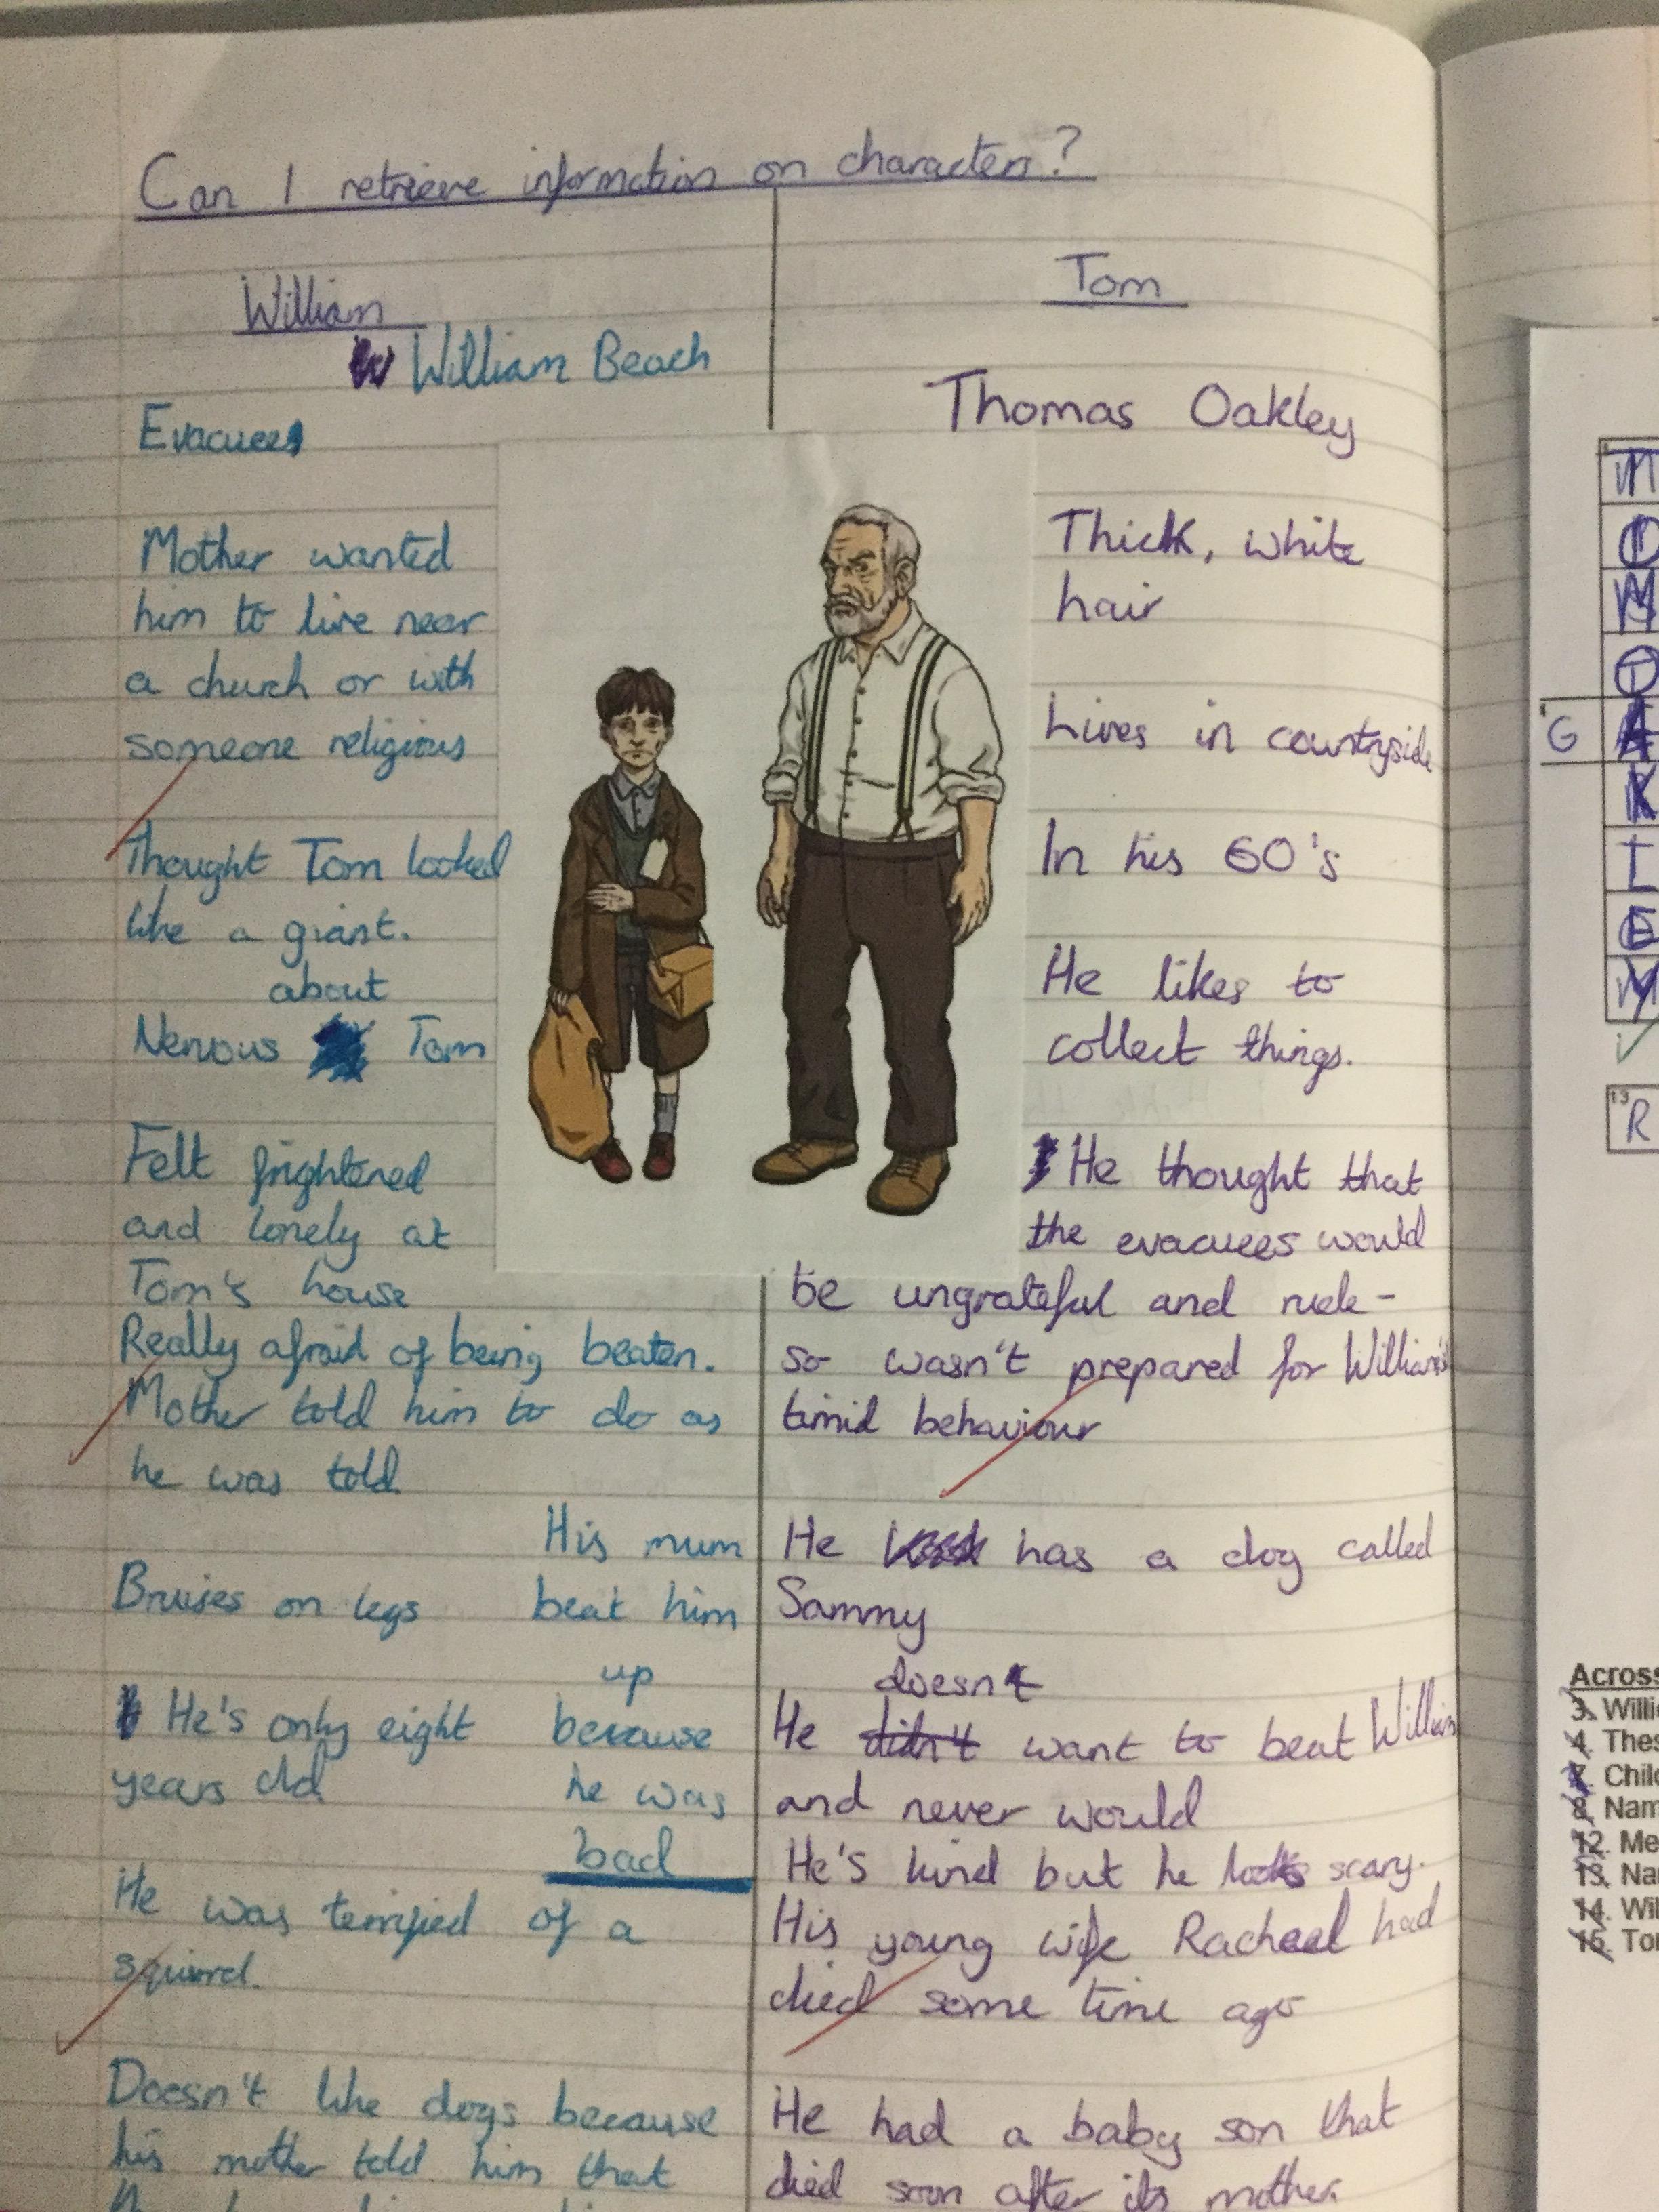 Can I retrieve information on characters?
William
William Beach
Evacuee
Mother wanted
him to live near
a church or with
someone religious
Thought Tom looked
like a giant.
about
Nervous Tom
Felt frightened
and lonely at
Tom's house
Really afraid of being beaten.
Mother told him to do as
he was told.
His mum
Bruises on legs
beat him
up
He's only eight
because
years old
he was
bad
He was terrified of a
squirrel.
Doesn't like dogs because
his mother told him that
Tom
Thomas Oakley
Thick, white
hair
Lives in countryside
In his 60's
He likes to
collect things.
He thought that
the evacuees would
be ungrateful and rude -
so wasn't prepared for William's
timid behaviour
He has a dog called
Sammy
doesn't
He didn't want to beat William
and never would
He's kind but he looks scary.
His young wife Rachael had
died some time ago
He had a baby son that
died soon after its mother.
G
13
R
Across
3. Willi
4. Thes
7. Chil
8. Nam
12. Me
13. Na
14. Wil
15. To